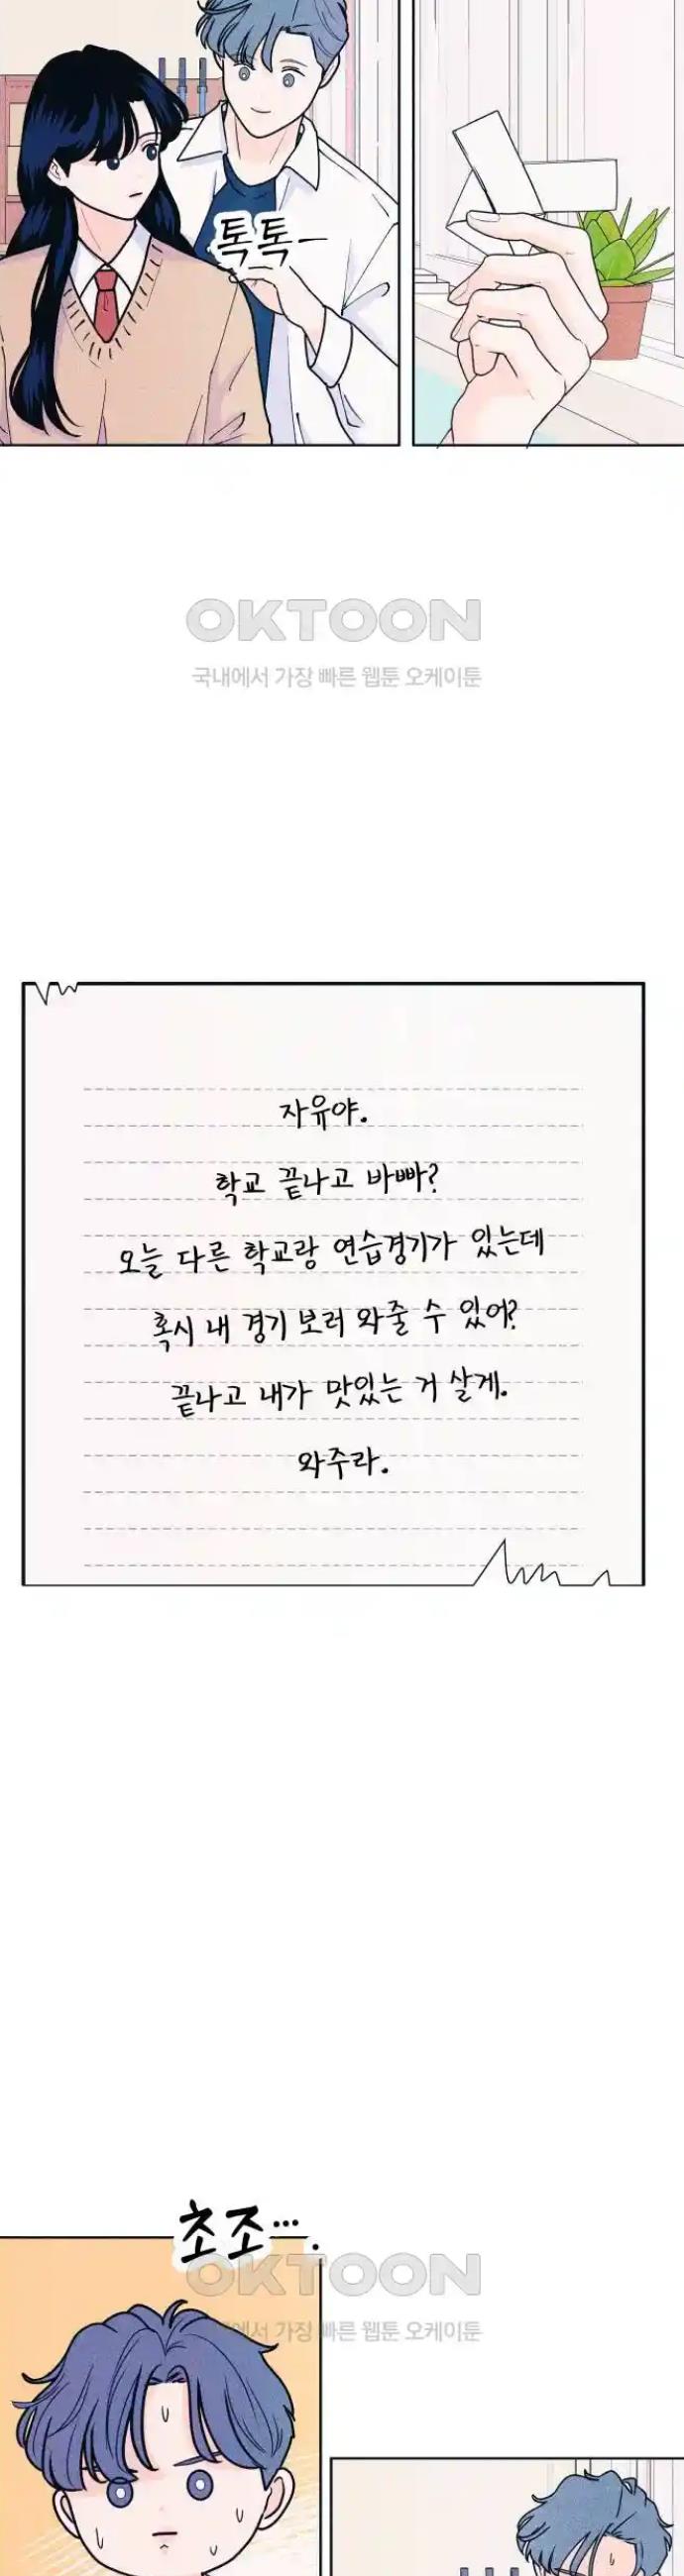 톡톡—
OKTOON
국내에서 가장 빠른 웹툰 오케이툰
자유야.
학교 끝나고 바빠?
오늘 다른 학교랑 연습경기가 있는데
혹시 내 경기 보러 와줄 수 있어?
끝나고 내가 맛있는 거 살게.
와주라.
초조....
OKTOON
에서 가장 빠른 웹툰 오케이툰